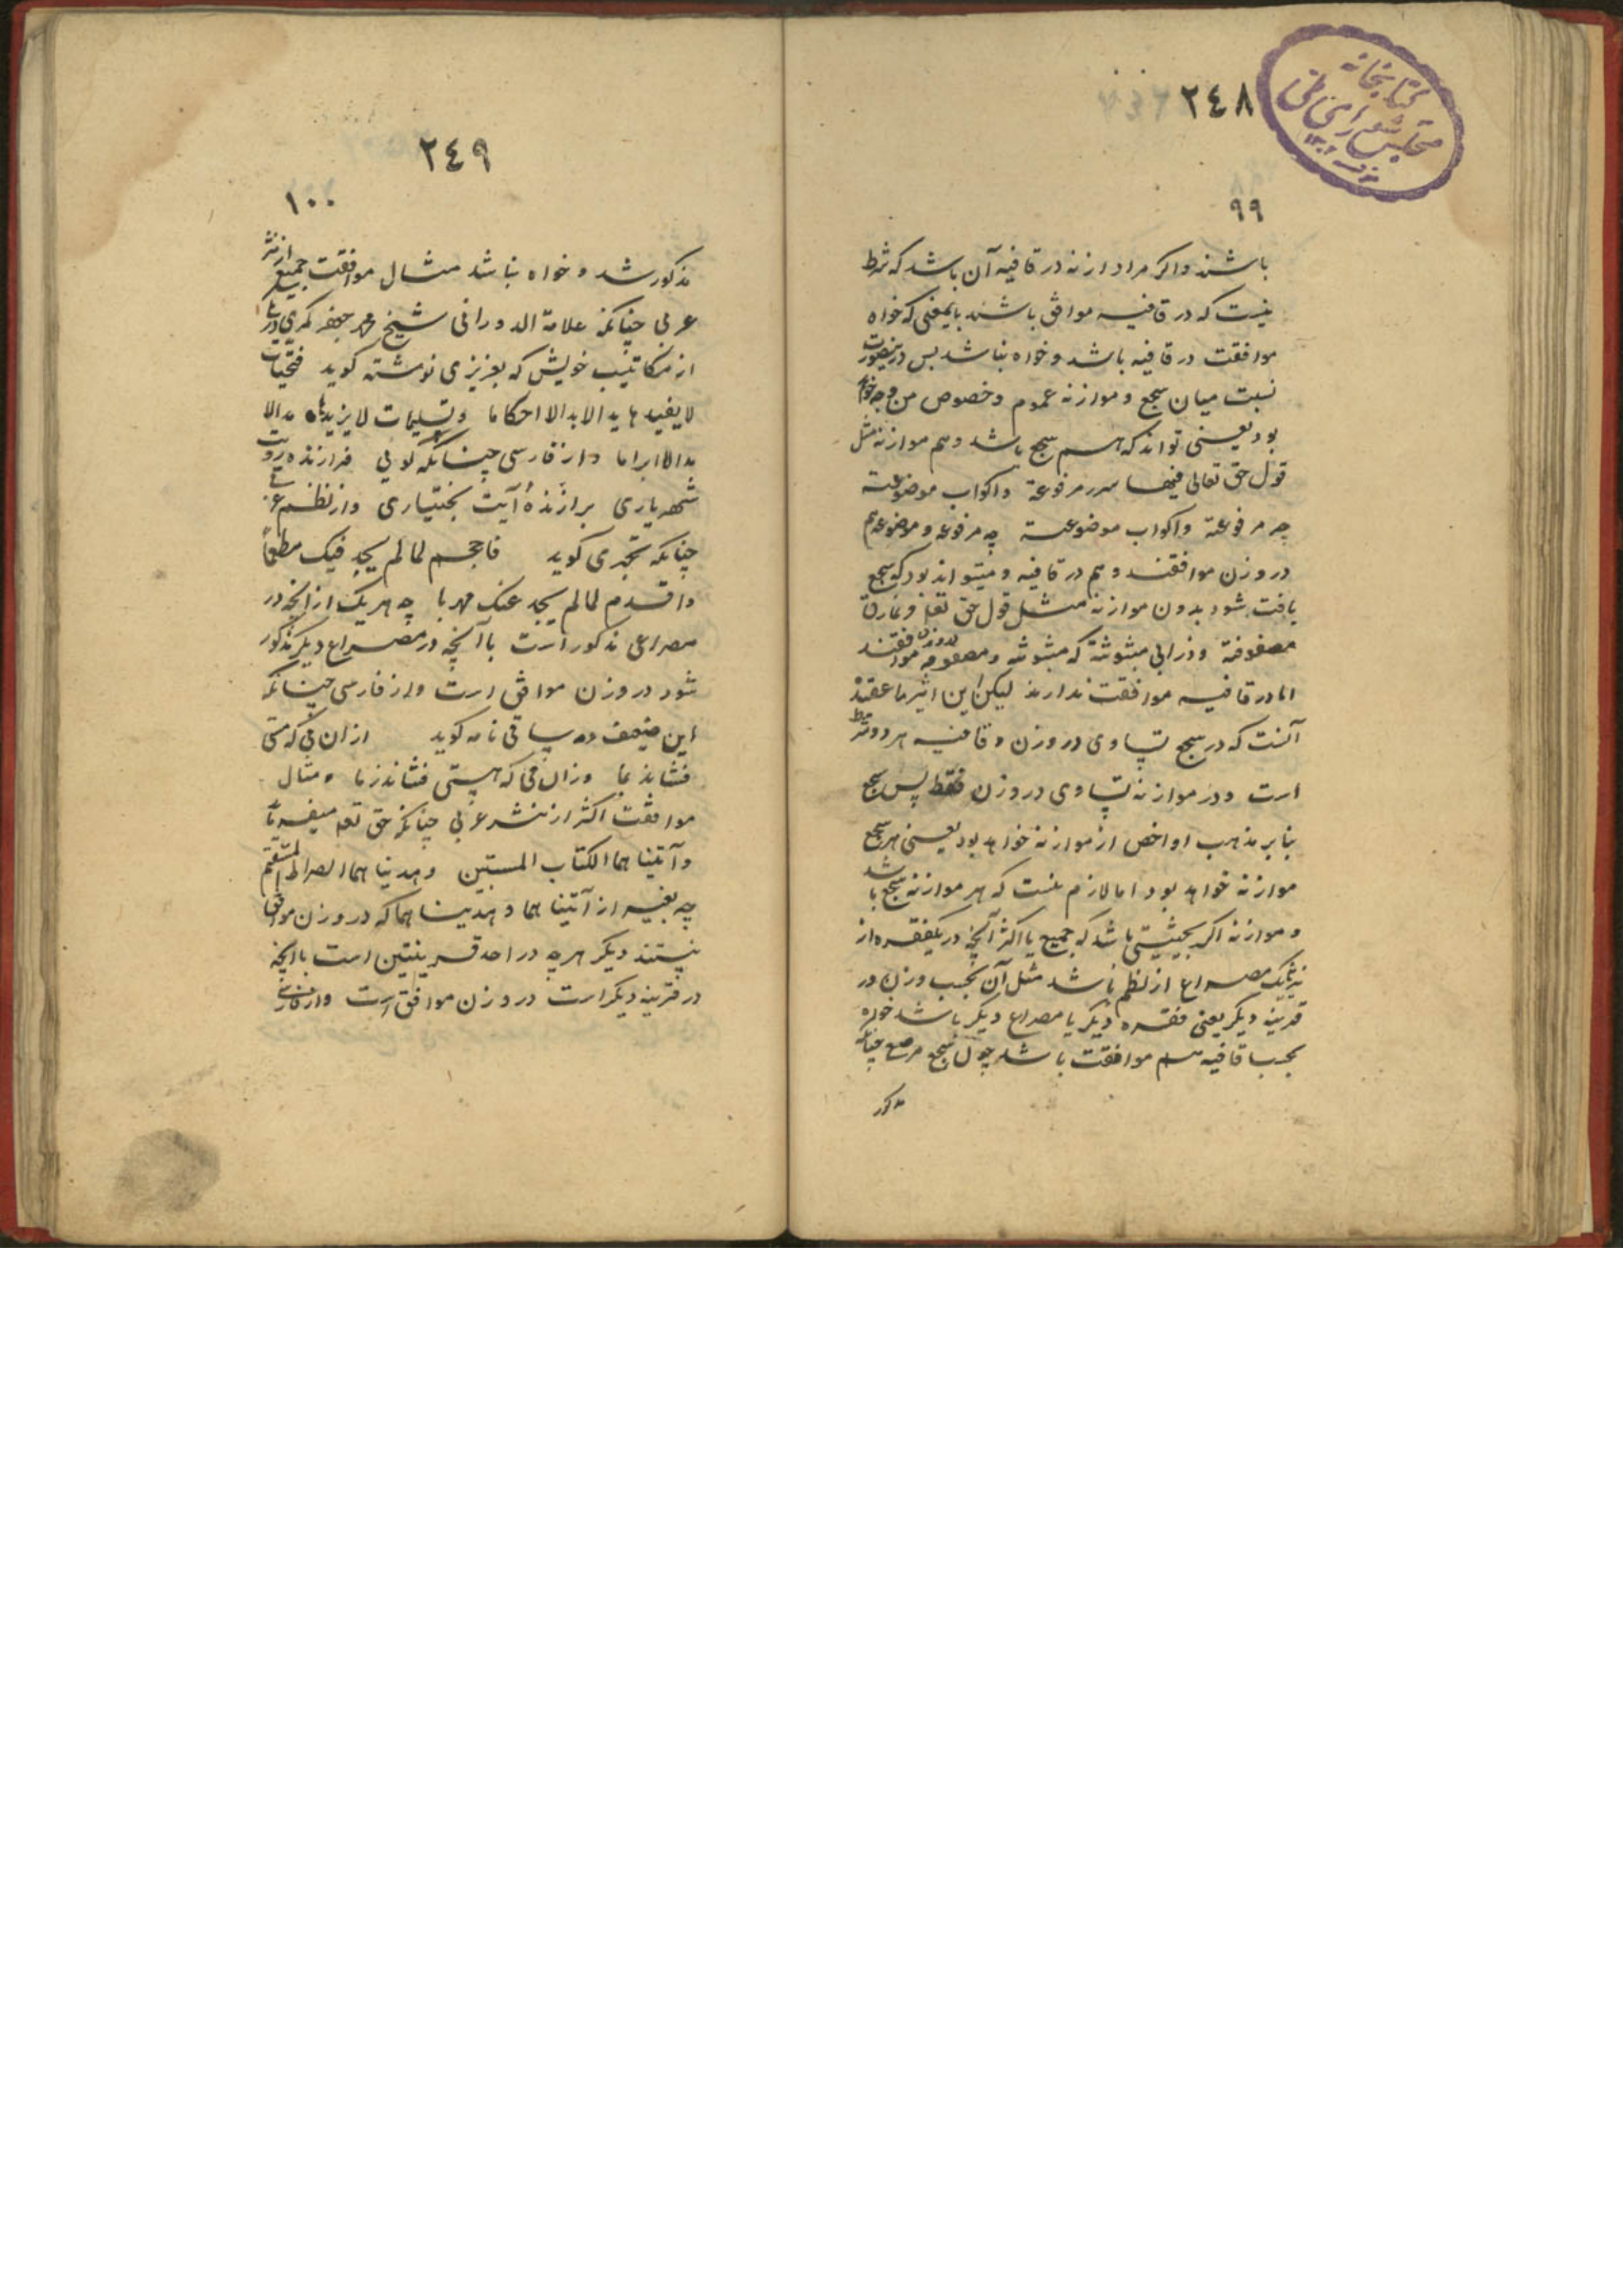 کتابخانه
مجلس شورای ملی
۲٤۸
۹۹
باشند و اکر مراد از نه در قافیه آن باشد که شرط
نیست که در قافیه موافق باشند بایمعنی که خواه
موافقت در قافیه باشد و خواه نباشد بس درینصورت
نسبت میان سجع و موازنه عموم و خصوص من وجه خواهد
بود یعنی تواند که هم سجع باشد و هم موازنه مثل
قول حق تعالی فیها سرر مرفوعة واکواب موضوعة
چه مرفوعة واکواب موضوعة چه مرفوعه و موضوعه هم
در وزن موافقند و هم در قافیه و میتواند بود که سجع
یافت شود بدون موازنه مثل قول حق تعا ونمارق
مصفوفة وزرابی مبثوثة که مبثوثه و مصفوفه در وزن موافقند
اما در قافیه موافقت ندارند لیکن ابن اثیر را عقیده
آنست که در سجع تساوی در وزن و قافیه هر دو شرط
است و در موازنه تساوی در وزن فقط پس سجع
بنا بر مذهب او اخص از موازنه خواهد بود یعنی هر سجع
موازنه خواهد بود اما لازم نیست که هر موازنه سجع باشد
و موازنه اکر بحیثیتی باشد که جمیع یا اکثر آنچه در یکفقره از
نثر یا یک مصراع از نظم باشد مثل آن بحسب وزن در
قرینه دیکر یعنی فقره دیکر یا مصراع دیکر باشد خواه
بحسب قافیه هم موافقت باشد چون سجع مرصع چنانکه
مذکور
۲٤۹
۱۰۰
مذکور شد و خواه نباشد مثال موافقت جمیع از نثر
عربی چنانکه علامة الدورانی شیخ محمد جعفر کمری در
از مکاتیب خویش که بعزیزی نوشته کوید فتحیات
لایفیدها ید الابدالا احکاما وتسلیمات لایزیدها مدالا
مدالا ابراما و از فارسی چنانکه کوئی فرازنده رایت
شهریاری برازندۀ آیت بختیاری و از نظم عربی
چنانکه بحتری کوید فاحجم لما لم یجد فیک مطمعاً
واقدم لما لم یجد عنک مهربا چه هر یک از آنچه در
مصراعی مذکور است با آنچه در مصراع دیکر مذکور
شود در وزن موافق است و از فارسی چنانکه
این ضعیف در ساقی نامه کوید ازان می که مستی
فشاند بما وزان می که هستی فشاند زما و مثال
موافقت اکثر از نثر عربی چنانکه حق تعه میفرماید
وآتیناهما الکتاب المستبین وهدیناهما الصراط المستقیم
چه بغیر از آتیناهما و هدیناهما که در وزن موافق
نیستند دیکر هرچه در احد قرینتین است با آنچه
در قرینه دیکر است در وزن موافق است و از فارسی